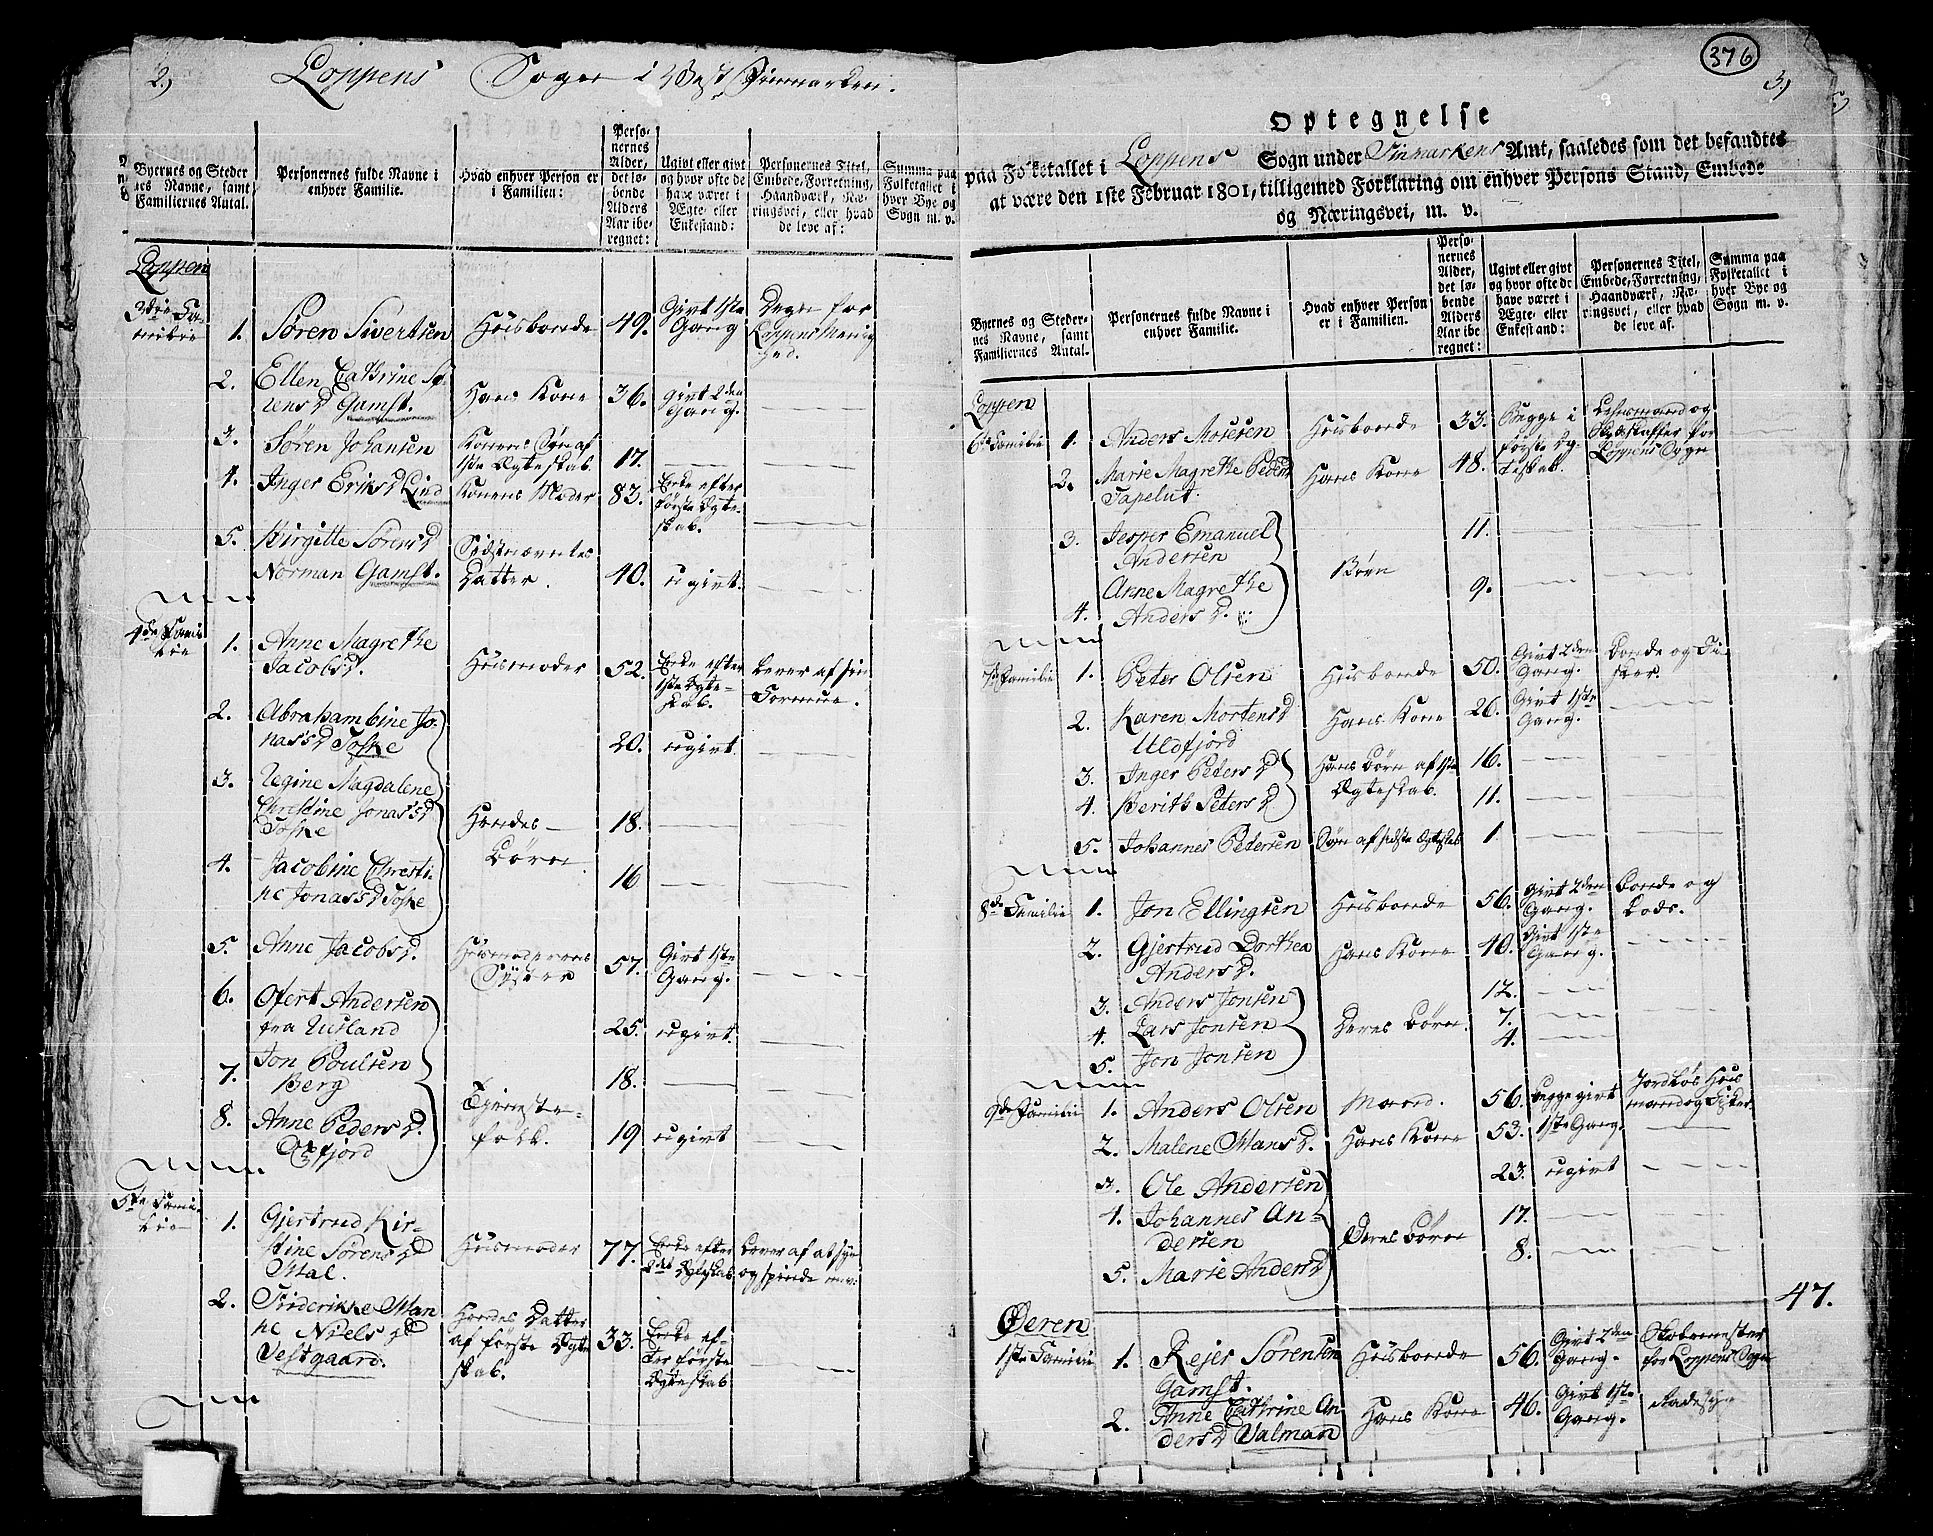 2,)
Loppens Sogn i Vest Finmarken.
Byernes og Steder
nes Navne, samt
Familiernes Antal.
Personernes fulde Navne i
enhver Familie.
Hvad enhver Person er
i Familien:
Perso-
nernes
Alder,
det lø-
bende
Alders
Aar ibe-
regnet:
Ugivt eller givt
og hvor ofte de
have været i
Ægte- eller
Enkestand:
Personernes Titel,
Embede, Forretning,
Haandværk, Næ-
ringsvei, eller hvad
de leve af:
Summa paa
Folketallet i
hver Bye og
Sogn m. v.
Loppen
3die Fa-
milie
1. Søren Sivertsen Huusbonde 49. Givt 1ste Gang Degn for Loppens Menighed.
2. Ellen Cathrine Sø-
rens D Gamst. Hans Kone 36. Givt 2den Gang. —
3. Søren Johansen Konens Søn af 1ste Ægteskab. 17. — —
4. Inger Eriks D Lind Konens Moder 83. Enke efter første Ægte-skab. —
5. Birgitte Sørens D
Norman Gamst. Sidstnævntes Datter. 40. ugivt. —
4de Fami-
lie
1. Anne Magrethe
Jacobs D. Huusmoder 52. Enke efter 1ste Ægte-skab. Lever af sin Formue.
2. Abrahambine Jo-
nas's D Foske 20. ugivt. —
3. Regine Magdalene
Christine Jonas's D
Foske Hendes Børn 18. — —
4. Jacobine Christi-
ne Jonas's D Foske 16 — —
5. Anne Jacobs D. Huusmoderens Syster 57. Givt 1ste Gang. —
6. Ofert Andersen
fra Rusland 25. ugivt. —
7. Jon Poulsen
Berg Tjeneste-folk. 18. — —
8. Anne Peders D.
Oxfjord 19 ugivt —
5te Fami-
lie
1. Gjertrud Kir-
stine Sørens D
Mal. Huusmoder 77. Enke efter 2det Ægteskab Lever af at sye og spinde m.v.
2. Friderikke Man-
ne Niels D
Vestgaard. Hendes Datter af første Ægte skab. 33. Enke ef-ter første Ægteskab —
376
3,)
Optegnelse
paa Folketallet i Loppens Sogn under Finmarkens Amt, saaledes som det befandtes
at være den 1ste Februar 1801, tilligemed Forklaring om enhver Persons Stand, Embede
og Næringsvei, m. v.
Byernes og Steder-
nes Navne, samt
Familiernes Antal.
Personernes fulde Navne i
enhver Familie.
Hvad enhver Person
er i Familien.
Perso-
nernes
Alder,
det lø-
bende
Alders
Aar ibe-
regnet:
Ugivt eller givt
og hvor ofte de
have været i
Ægte- eller
Enkestand:
Personernes Titel,
Embede, Forretning,
Haandværk, Næ-
ringsvei, eller hvad
de leve af.
Summa paa
Folketallet i
hver Bye og
Sogn m. v.
Loppen
6te Familie 1. Anders Mosesen Huusbonde 33. Begge i første Eg-teskab. Lehnsmand og Skydskaffer for Loppens Sogn
2. Marie Magrethe Peders D
Tapelut. Hans Kone 48.
3. Jesper Emanuel
Andersen 11. — —
Børn
4. Anne Magrethe
Anders D. 9. — —
7de Familie 1. Peter Olsen Huusbonde 50. Givt 2den Gang. Bonde og Fi-sker.
2. Karen Mortens D
Uldfjord Hans Kone 26. Givt 1ste Gang. —
3. Inger Peters D Hans Børn af 1ste Ægteskab. 16. — —
4. Berith Peters D 11. — —
5. Johannes Petersen Søn af sidste Ægteskab 1. — —
8de Familie 1. Jon Ellingsen Huusbonde 56. Givt 2den Gang. Bonde og Lods.
2. Gjertrud Dorthea
Anders D. Hans Kone 40. Givt 1ste Gang. —
3. Anders Jonsen 12. — —
4. Lars Jonsen Deres Børn. 7. — —
5. Jon Jonsen 4.
9de Familie 1. Anders Olsen Mand. 56. Begge givt 1ste Gang. Jordløs Huus mand og Fisker.
2. Malene Mans D. Hans Kone 53. —
3. Ole Andersen 23. ugivt —
4. Johannes An-
dersen Deres Børn 17. — —
5. Marie Anders D 8. — —
47.
Øeren
1ste Familie 1. Rejer Sørensen
Gamst. Huusbonde 56. Givt 2den Gang. Skolemester for Loppens Sogn
2. Anne Cathrine An
ders D Valman Hans Kone 46. Givt 1ste Gang.